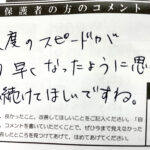 保護者の方のコメント
度のスピードが
早くなったように思
続けてほしいですね。
、良かったこと、改善してほしいことをご記入ください。「自
コメントを書いていただくことで、ぜひ今まで見えなかった
したところを見つけてあげて、ほめてあげてください。